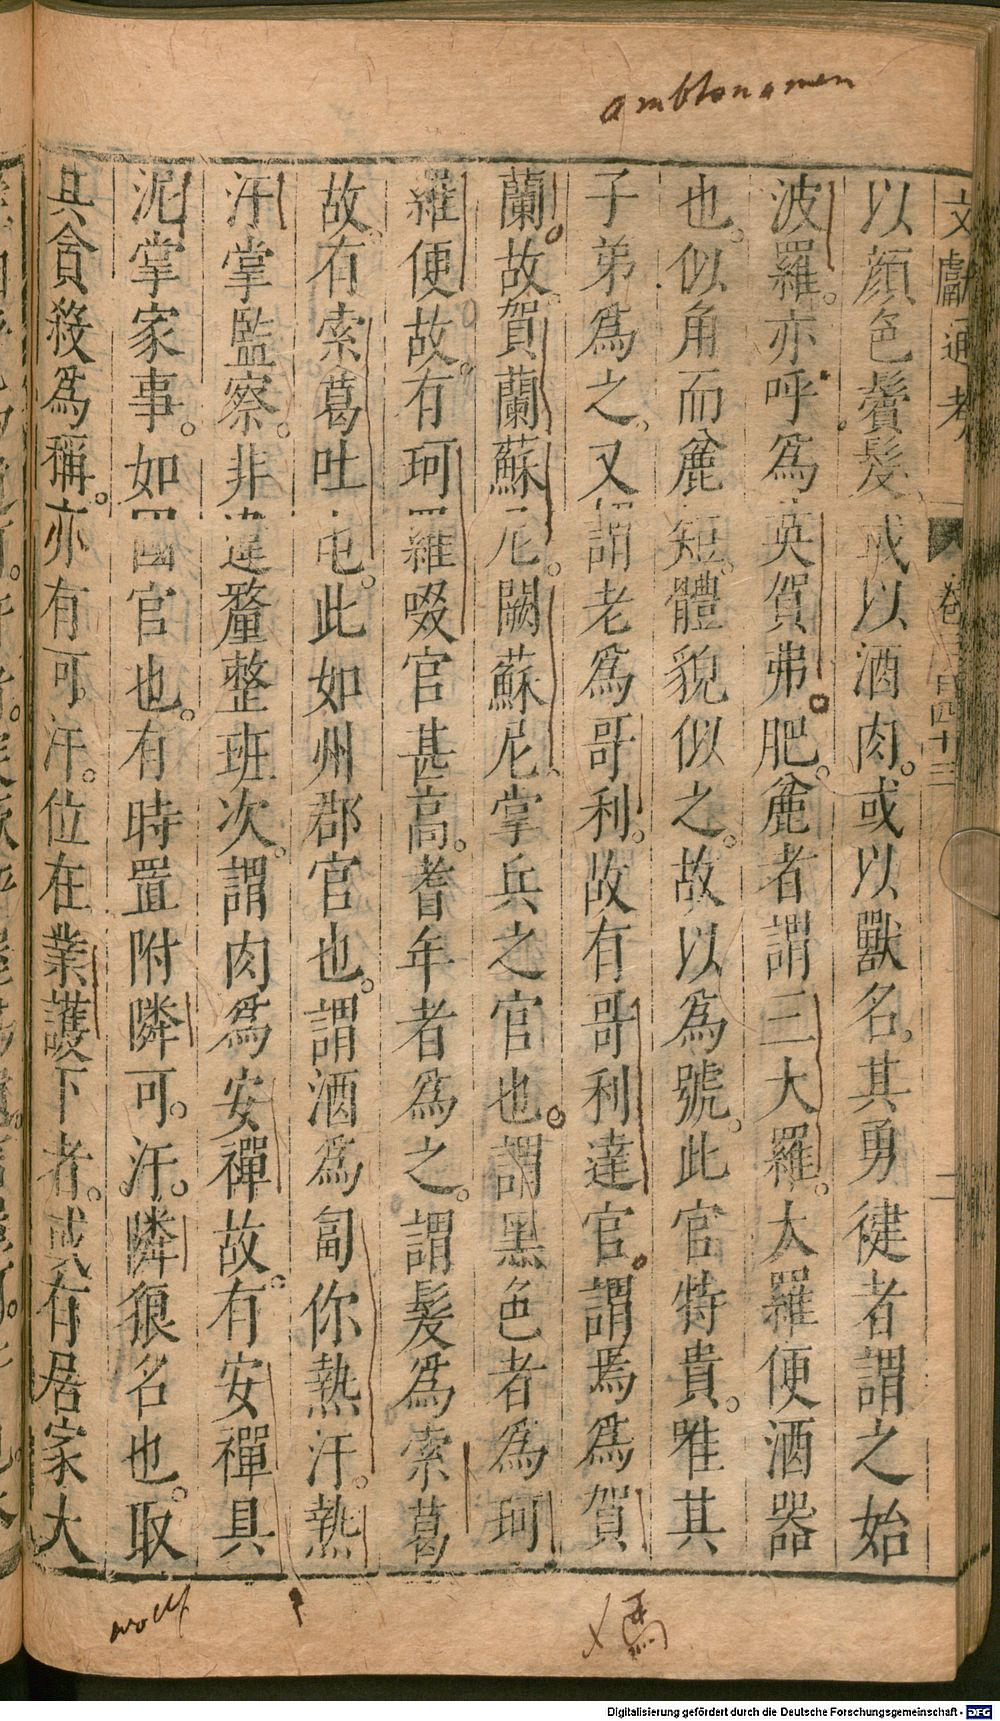 ambtsnamen
文獻通考 卷三百四十三 二
以顔色鬢髮或以酒肉。或以獸名。其勇健者謂之始
波羅。亦呼爲英賀弗。肥麄者謂三大羅。大羅便酒器
也。似角而麄短。體貌似之。故以爲號。此官特貴。唯其
子弟爲之。又謂老爲哥利。故有哥利達官。謂焉爲賀
蘭。故賀蘭蘇尼闕蘇尼。掌兵之官也。謂黑色者爲珂
羅便。故有珂羅啜官甚高。耆年者爲之。謂髮爲索葛
故有索葛吐屯。此如州郡官也。謂酒爲匐你熱汗。熱
汗掌監察非違釐整班次。謂肉爲安禪故有安禪具
泥掌家事。如國官也。有時置附隣可汗。隣狼名也。取
其貪殺爲稱。亦有可汗。位在業護下者。或有居家大
馬
wolf
Digitalisierung gefördert durch die Deutsche Forschungsgemeinschaft - DFG